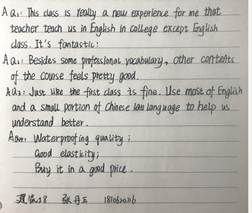 AQ1: This class is really a new experience for me that
teacher teach us in English in college except English
class. It's fantastic!
AQ2: Besides some professional vocabulary, other contents
of the course feels pretty good.
AQ3: Just like the first class is fine. Use most of English
and a small portion of Chinese law language to help us
understand better.
Waterproofing quality;
Good elasticity;
Buy it in a good price.
张丹玉